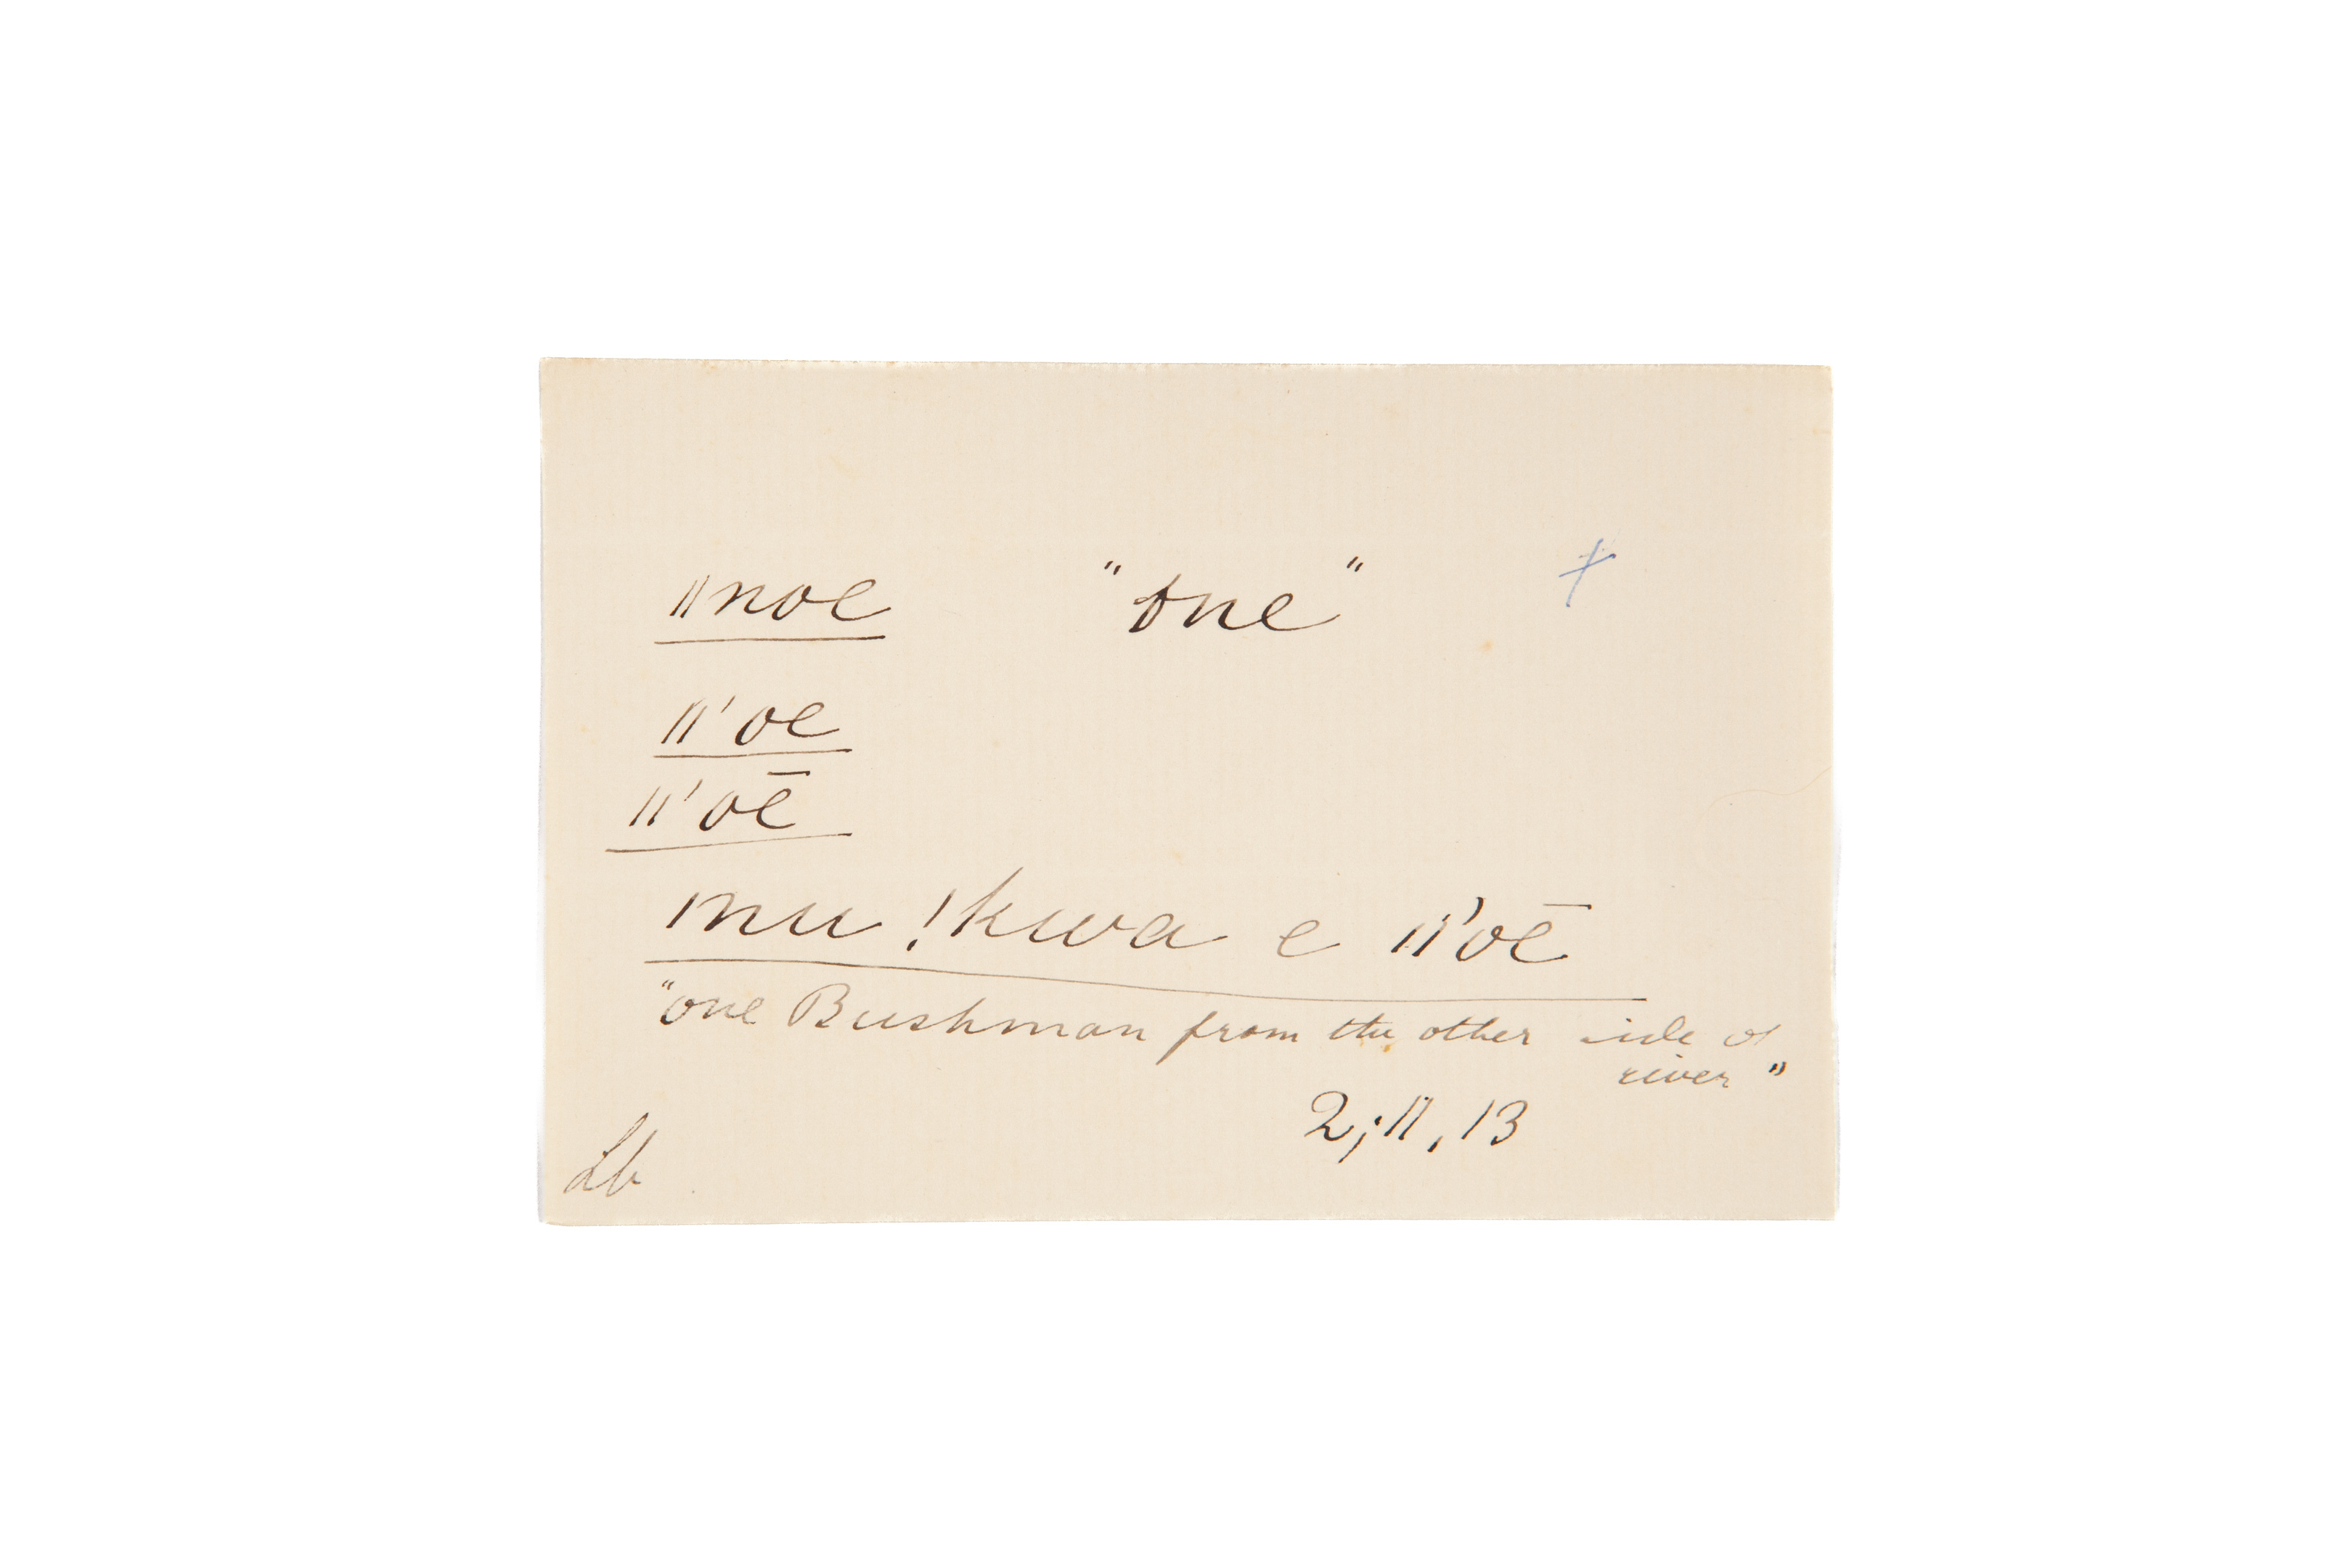 ǁnoe "one" +
ǁ'oe
ǁ'oē
ǀnu !kwa e ǁ'oē
"one Bushman from the other side of
river"
2; 11, 13
Lb